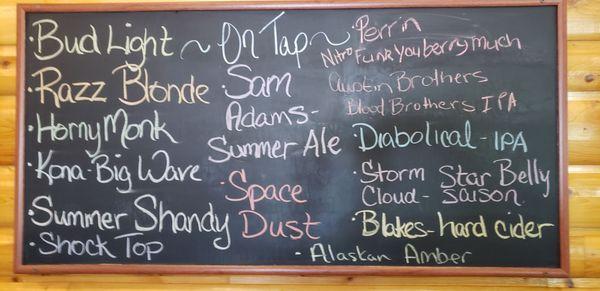 ~ On Tap ~
· Bud Light
· Razz Blonde
· Horny Monk
· Kona-Big Wave
· Summer Shandy
· Shock Top
· Sam
Adams-
Summer Ale
· Space
Dust
· Perrin
Nitro Funk you berry much
Austin Brothers
Blood Brothers IPA
· Diabolical - IPA
· Storm Star Belly
Cloud- Saison
· Blakes-hard cider
- Alaskan Amber